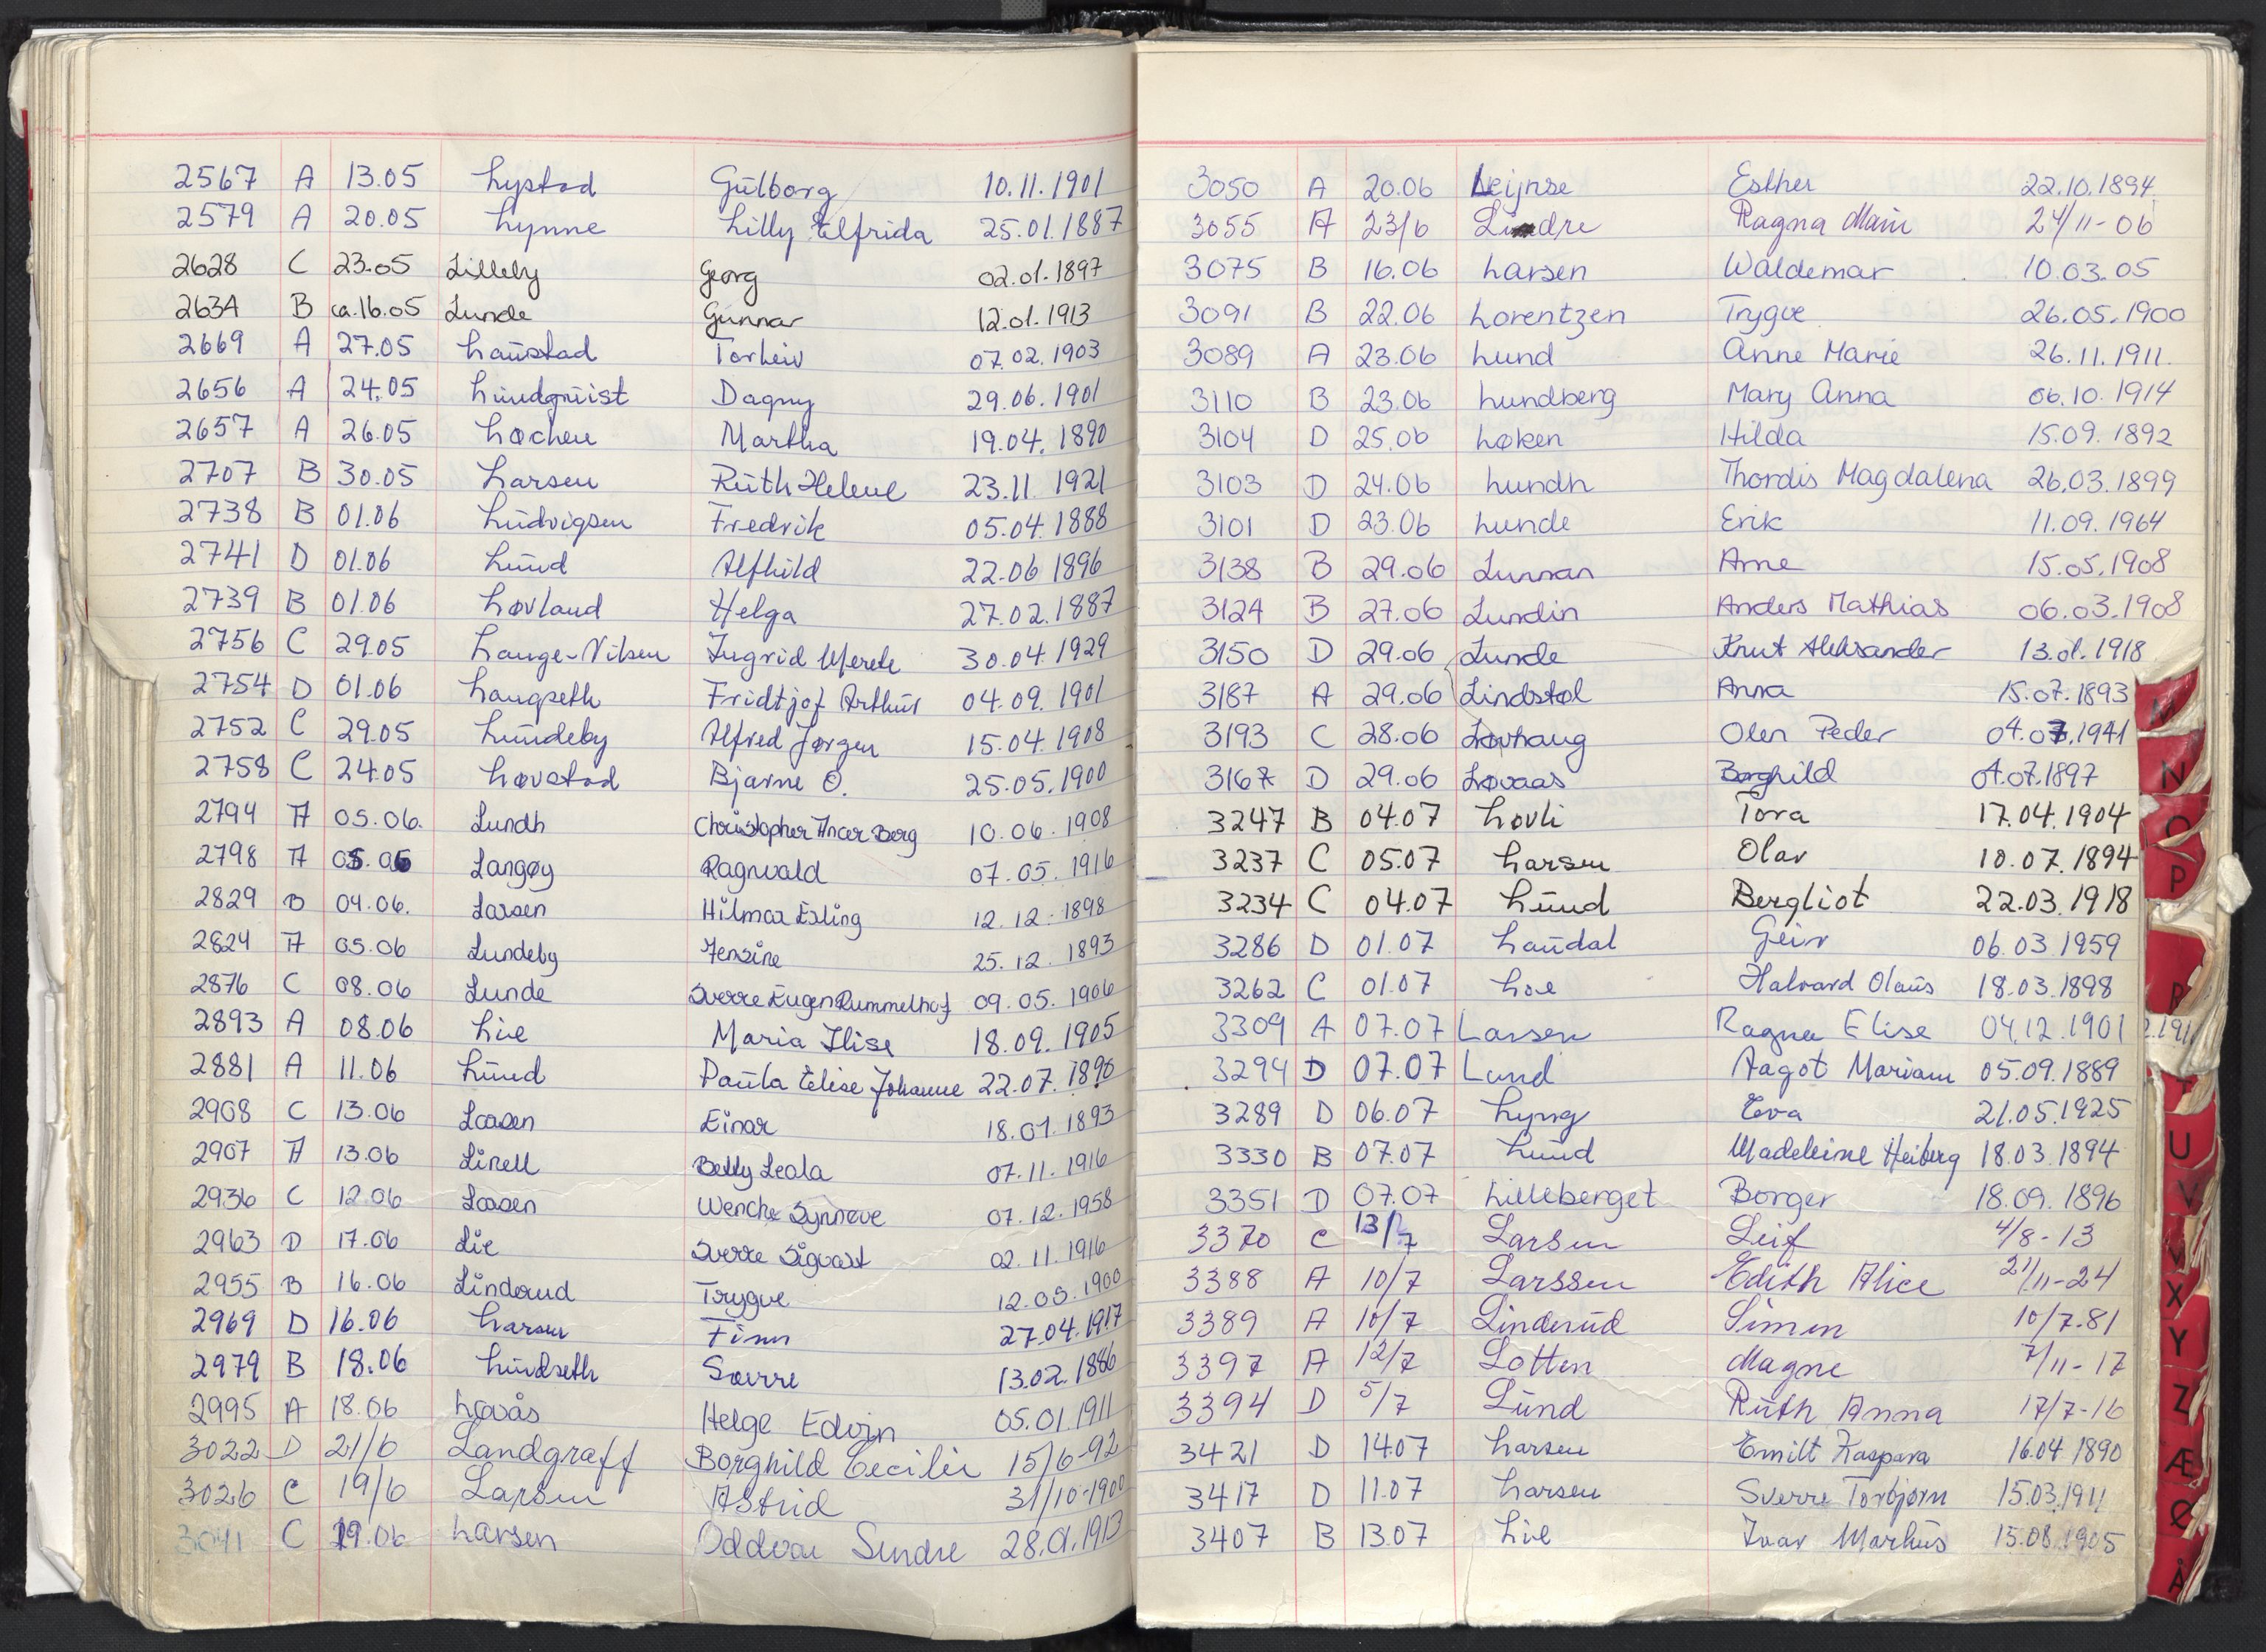 2567 A 13.05 Lystad Gülborg 10.11.1901
2579 A 20.05 Lynne Lilly Elfrida 25.01.1887
2628 C 23.05 Lilleby Georg 02.01.1897
2634 B ca.16.05 Lunde Gunnar 12.01.1913
2669 A 27.05 Laustad Torleiv 07.02.1903
2656 A 24.05 Lindquist Dagny 29.06.1901
2657 A 26.05 Lochen Martha 19.04.1890
2707 B 30.05 Larsen Ruth Helene 23.11.1921
2738 B 01.06 Ludvigsen Fredrik 05.04.1888
2741 D 01.06 Lund Alfhild 22.06 1896
2739 B 01.06 Løvland Helga 27.02.1887
2756 C 29.05 Lange-Nilsen Ingrid Merete 30.04.1929
2754 D 01.06 Langseth Fridtjof Arthur 04.09.1901
2752 C 29.05 Lundeby Alfred Jørgen 15.04.1908
2758 C 24.05 Løvstad Bjarne O. 25.05.1900
2794 A 05.06. Lundh Christopher Ancer Berg 10.06.1908
2798 A 05.06 Langøy Ragnvald 07.05.1916
2829 B 04.06. Larsen Hilmar Erling 12.12.1898
2824 A 05.06 Lundeby Jensine 25.12.1893
2876 C 08.06 Lunde Sverre Eugen Rummelhof 09.05.1906
2893 A 08.06 Lie Maria Elise 18.09.1905
2881 A 11.06 Lund Paula Elise Johanne 22.07.1890
2908 C 13.06 Larsen Einar 18.01.1893
2907 A 13.06 Linell Betty Leola 07.11.1916
2936 C 12.06 Larsen Wenche Synnøve 07.12.1958
2963 D 17.06 Lie Sverre Sigvart 02.11.1916
2955 B 16.06 Linderud Trygve 12.05.1900
2969 D 16.06 Larsen Finn 27.04.1917
2979 B 18.06 Lindseth Sverre 13.02.1886
2995 A 18.06 Løvås Helge Edvin 05.01.1911
3022 D 21/6 Landgraff Borghild Cecilie 15/6-92
3026 C 19/6 Larsen Astrid 31/10-1900
3041 C 19.06 Larsen Oddvar Sindre 28.01.1913
3050 A 20.06 Leijnse Esther 22.10.1894
3055 A 23/6 Lindre Ragna Marie 24/11-06
3075 B 16.06 Larsen Waldemar 10.03.05
3091 B 22.06 Lorentzen Trygve 26.05.1900
3089 A 23.06 Lund Anne Marie 26.11.1911.
3110 B 23.06 Lundberg Mary Anna 06.10.1914
3104 D 25.06 Løken Hilda 15.09.1892
3103 D 24.06 Lundh Thordis Magdalena 26.03.1899
3101 D 23.06 Lunde Erik 11.09.1964
3138 B 29.06 Lunnan Arne 15.05.1908
3124 B 27.06 Lundin Anders Mathias 06.03.1908
3150 D 29.06 Lunde Knut Aleksander 13.01.1918
3187 A 29.06 Lindstøl Anna 15.07.1893
3193 C 28.06 Løvhaug Olen Peder 04.07.1941
3167 D 29.06 Løvaas Borghild 01.07.1897
3247 B 04.07 Løvli Tora 17.04.1904
3237 C 05.07 Larsen Olav 10.07.1894
3234 C 04.07 Lund Bergliot 22.03.1918
3286 D 01.07 Laudal Geir 06.03 1959
3262 C 01.07 Loe Halvard Olaus 18.03.1898
3309 A 07.07 Larsen Ragna Elise 04.12.1901
3294 D 07.07 Lund Aagot Mariam 05.09.1889
3289 D 06.07 Lyng Eva 21.05.1925
3330 B 07.07 Lund Madeleine Heiberg 18.03.1894
3351 D 07.07 Lilleberget Borger 18.09.1896
3370 C 13/7 Larsen Leif 4/8-13
3388 A 10/7 Larssen Edith Alice 21/11-24
3389 A 10/7 Linderud Simen 10/7.81
3397 A 12/7 Lotten Magne 7/11-17
3394 D 5/7 Lund Ruth Anna 17/7-16
3421 D 14.07 Larsen Emilt Kaspara 16.04.1890
3417 D 11.07 Larsen Sverre Torbjørn 15.03.1911
3407 B 13.07 Lie Ivar Markus 15.08.1905
M
N
O
P
R
U
V
X
Y
Z
Æ
Ø
Å